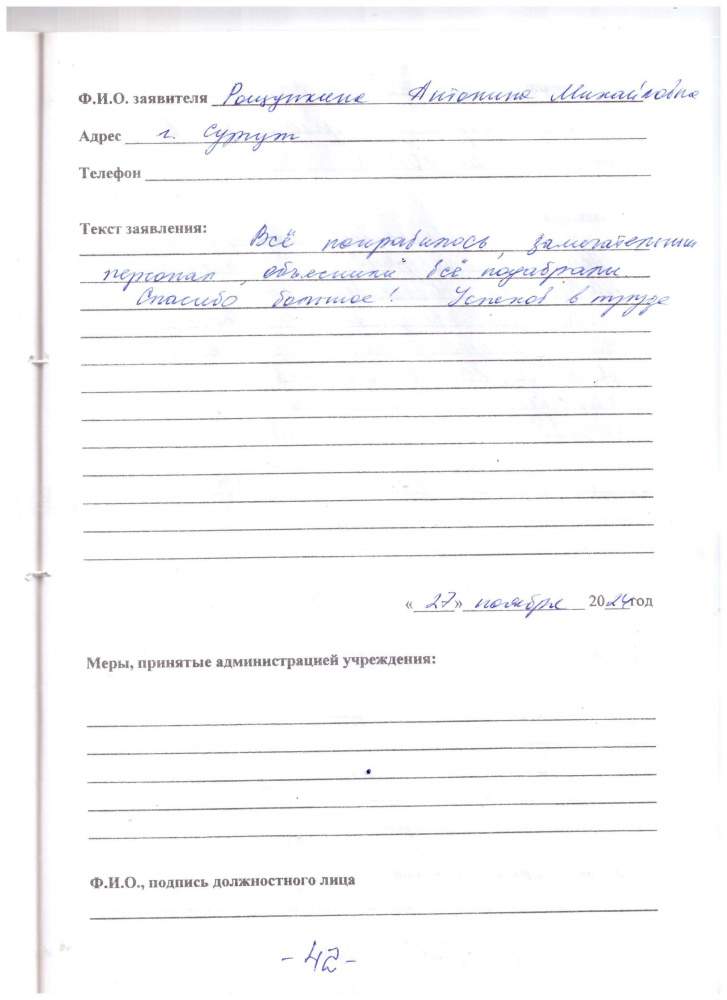 Ф.И.О. заявителя Рощупкина Антонина Михайловна
Адрес г. Сургут
Телефон
Текст заявления:
Всё понравилось, замечательный
персонал, объяснили всё подобрали.
Спасибо большое! Успехов в труде
«27» ноября 2024год
Меры, принятые администрацией учреждения:
Ф.И.О., подпись должностного лица
- 42 -